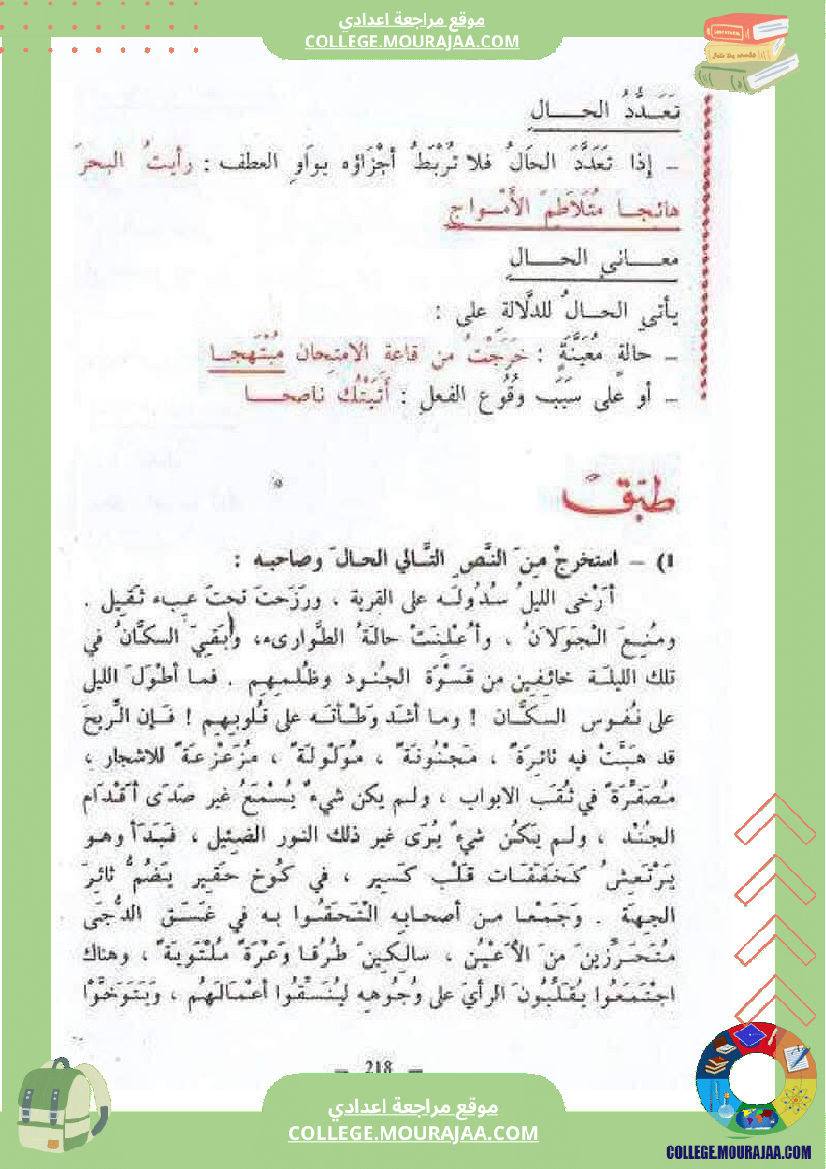 موقع مراجعة اعدادي
COLLEGE.MOURAJAA.COM
تَعَــدُّدُ الحـــال
– إذا تَعَدَّدَ الحَالُ فلا تُرْبَطُ أجْزَاؤه بواوِ العطف : رأيتُ البحرَ
هائجـا مُتَلَاطِمَ الأَمْـواجِ
معـــاني الحـــال
يأتي الحـالُ للدَّلالةِ على :
– حالةٍ مُعَيَّنَةٍ : خَرَجْتُ من قاعة الامتِحان مُبْتَهجـا
– أو على سَبَبِ وقُوع الفعلِ : أَتَيْتُك ناصحـا
طبّق
1) – استخرجْ مِنَ النَّصِ التَّـالي الحـالَ وصاحبـه :
أرْخى الليلُ سُدُولَـه على القرية ، ورَزَحتْ تحتَ عِبء ثَقِيل .
ومُنِعَ الْجَوَلَانُ ، وأُعْلِنَتْ حالةُ الطَّوارىء، وبَقِيَ السكَّانُ في
تلك الليلـة خائفِين من قَسْوَة الجُنود وظُلمِهم . فما أطْوَلَ الليل
على نُفوس السكَّان ! وما أشد وَطْأتَه على قُلوبِهم ! فإن الرِّيحَ
قد هَبَّتْ فيه ثائِرةً ، مَجْنُونَةً ، مُوَلْوِلةً ، مُزَعْزِعةً للاشجار ،
مُصَفِّرةً في ثُقَب الابواب ، ولم يكن شيءٌ يُسْمَعُ غير صَدَى أقْدَام
الجُنْد ، ولـم يَكُن شيءٌ يُرَى غير ذلك النور الضئيل ، فَبَدَا وهو
يَرْتَعِشُ كَخَفَقَات قَلْب كَسير ، في كُوخ حَقير يَضُمُّ ثائرَ
الجهة . وجَمْعا من أصحابه الْتَحَقُوا به في غَسَق الدُّجَى
مُتَحَرِّزِينَ مِنَ الأَعْيُن ، سالِكِينَ طُرُقا وَعْرَةً مُلْتَوِيَةً ، وهناك
اجْتَمَعُوا يُقَلِّبُونَ الرأيَ على وُجُوهِه لِيُنَسِّقُوا أعْمَالَهُم ، ويَتَوَخَّوْا
– 218 –
موقع مراجعة اعدادي
COLLEGE.MOURAJAA.COM
COLLEGE.MOURAJAA.COM